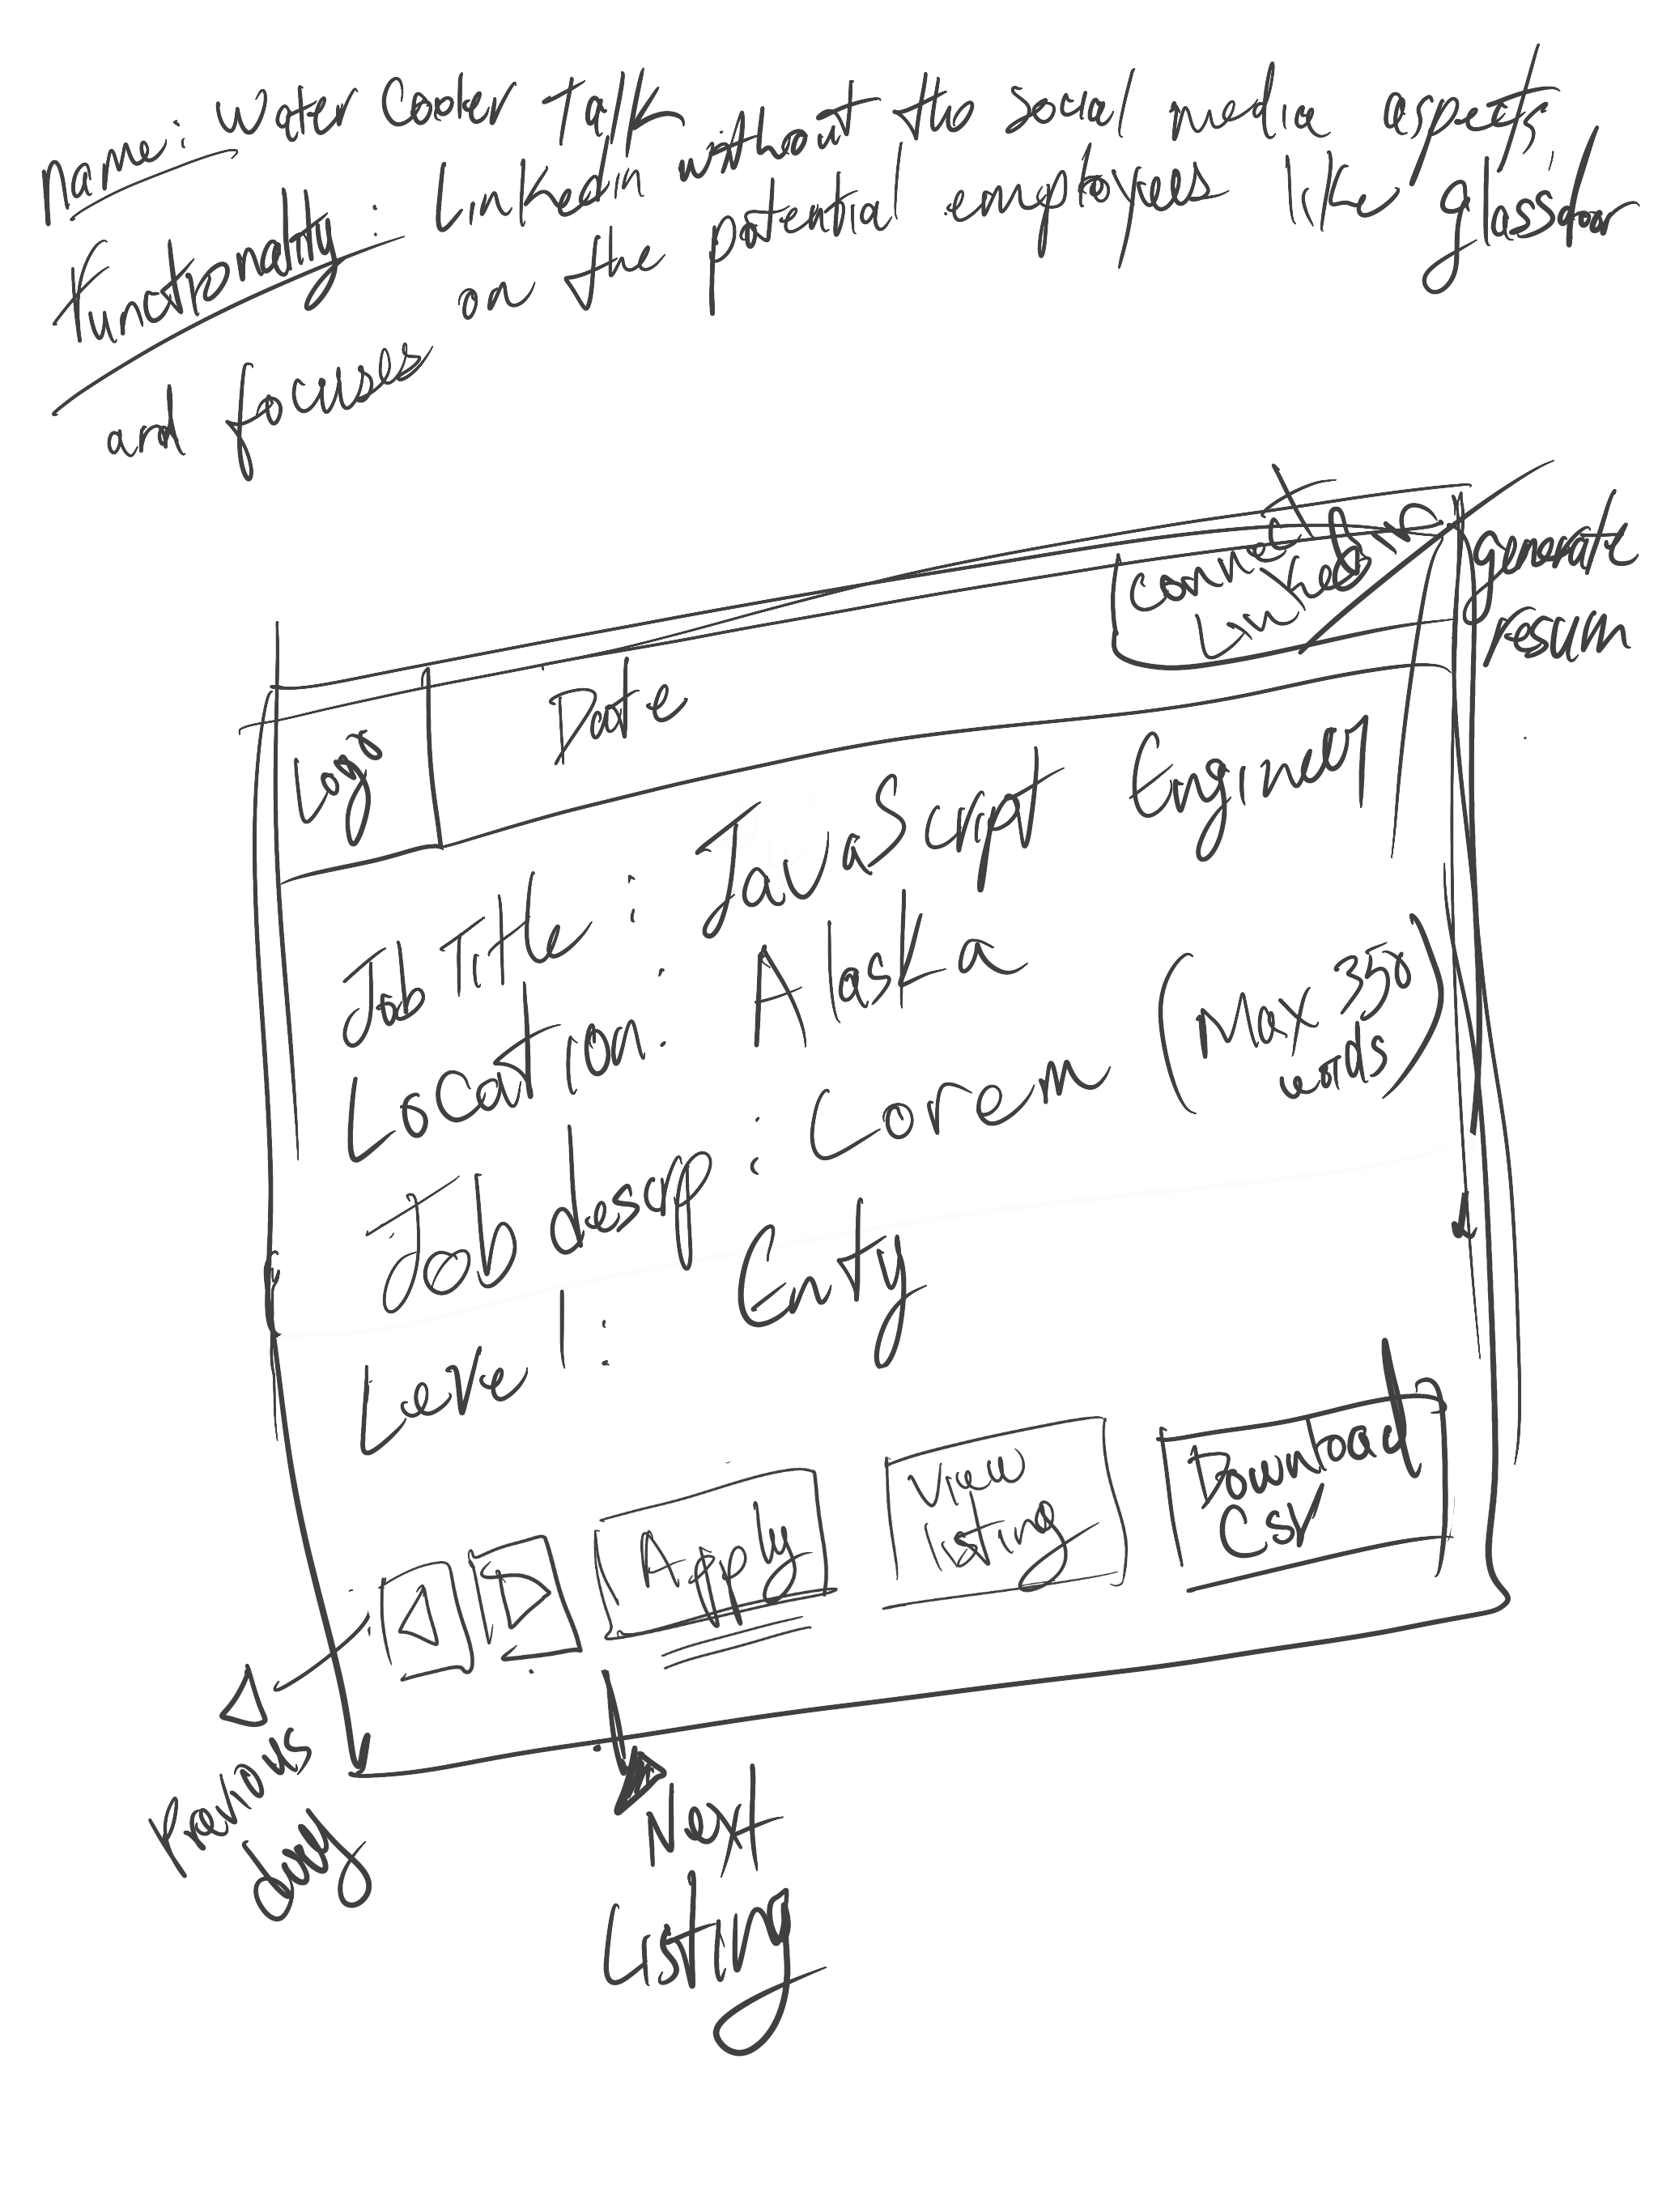 Name: Water Cooler Talk
Functionality: Linkedin without the social media aspects
and focuses on the potential employees like glassdoor
Connect
LinkedIn
generate
resum
Logo
Date
Job Title: JavaScript Engineer
Location: Alaska
Job descrp: Lorem (Max 350
words)
Level: Enty
Apply
View
listing
Download
CSV
Previous
day
Next
Listing